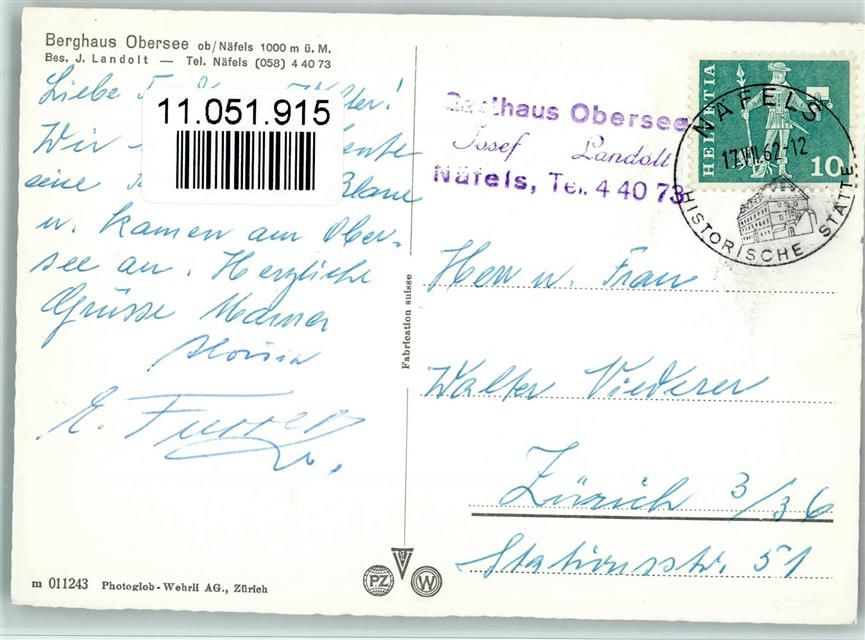 Berghaus Obersee ob/Näfels 1000 m ü. M.
Bes. J. Landolt — Tel. Näfels (058) 4 40 73
Liebe
11.051.915
Wir
eine
u. kamen am Ober-
see an. Herzliche
Grüsse Mamma
E. Furrer
Gasthaus Obersee
Josef Landolt
Näfels, Tel. 4 40 73
HELVETIA
10
NÄFELS
17.VII.62-12
HISTORISCHE STÄTTE
Fabrication suisse
Herr u. Frau
Walter Viederer
Zürich 3/36
Stationsstr. 51
m 011243 Photoglob-Wehrli AG., Zürich
PZ
W